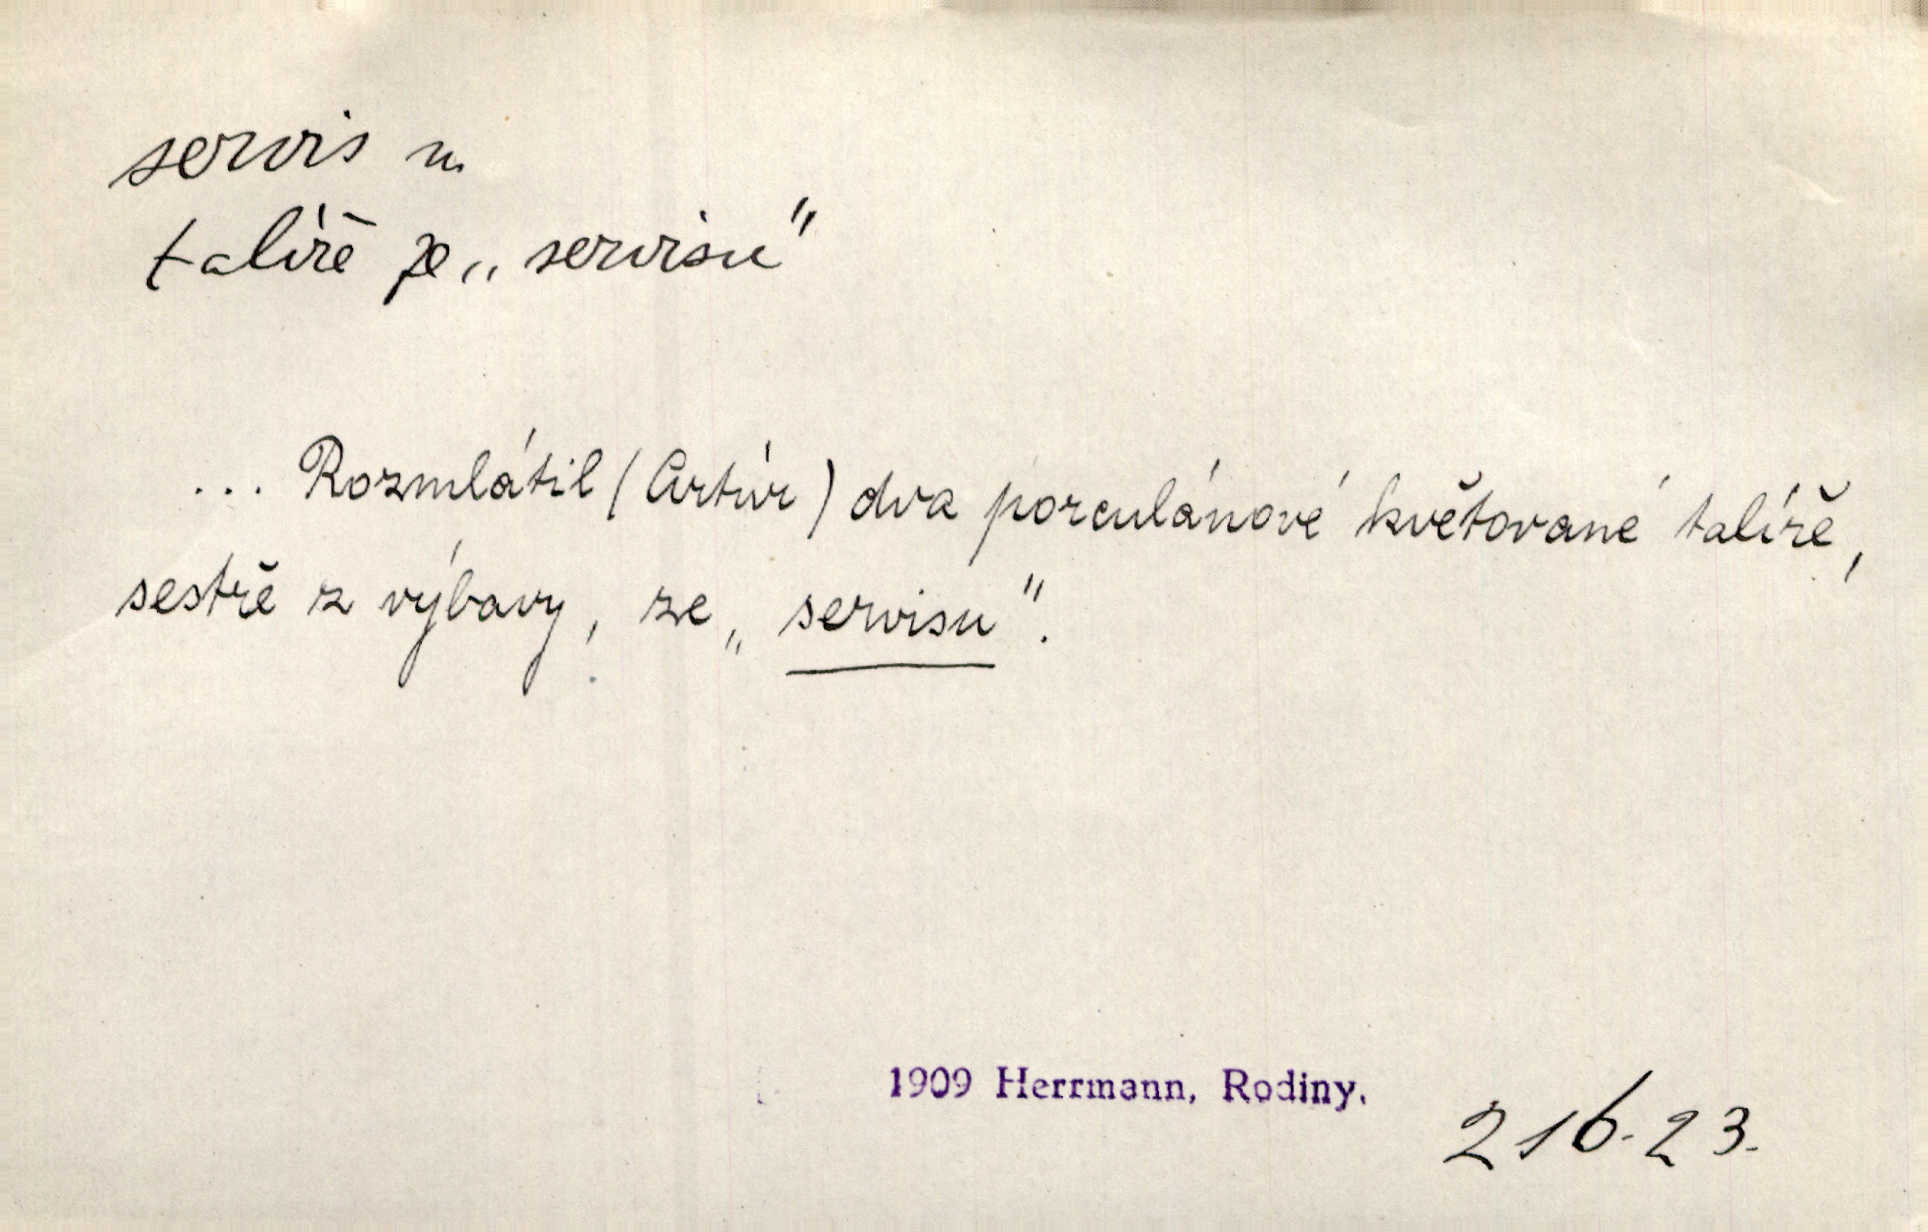 servis m.
talíře ze „servisu"
... Rozmlátil (Artúr) dva porculánové květované talíře,
sestře z výbavy, ze „servisu".
1909 Herrmann, Rodiny.
216.23.